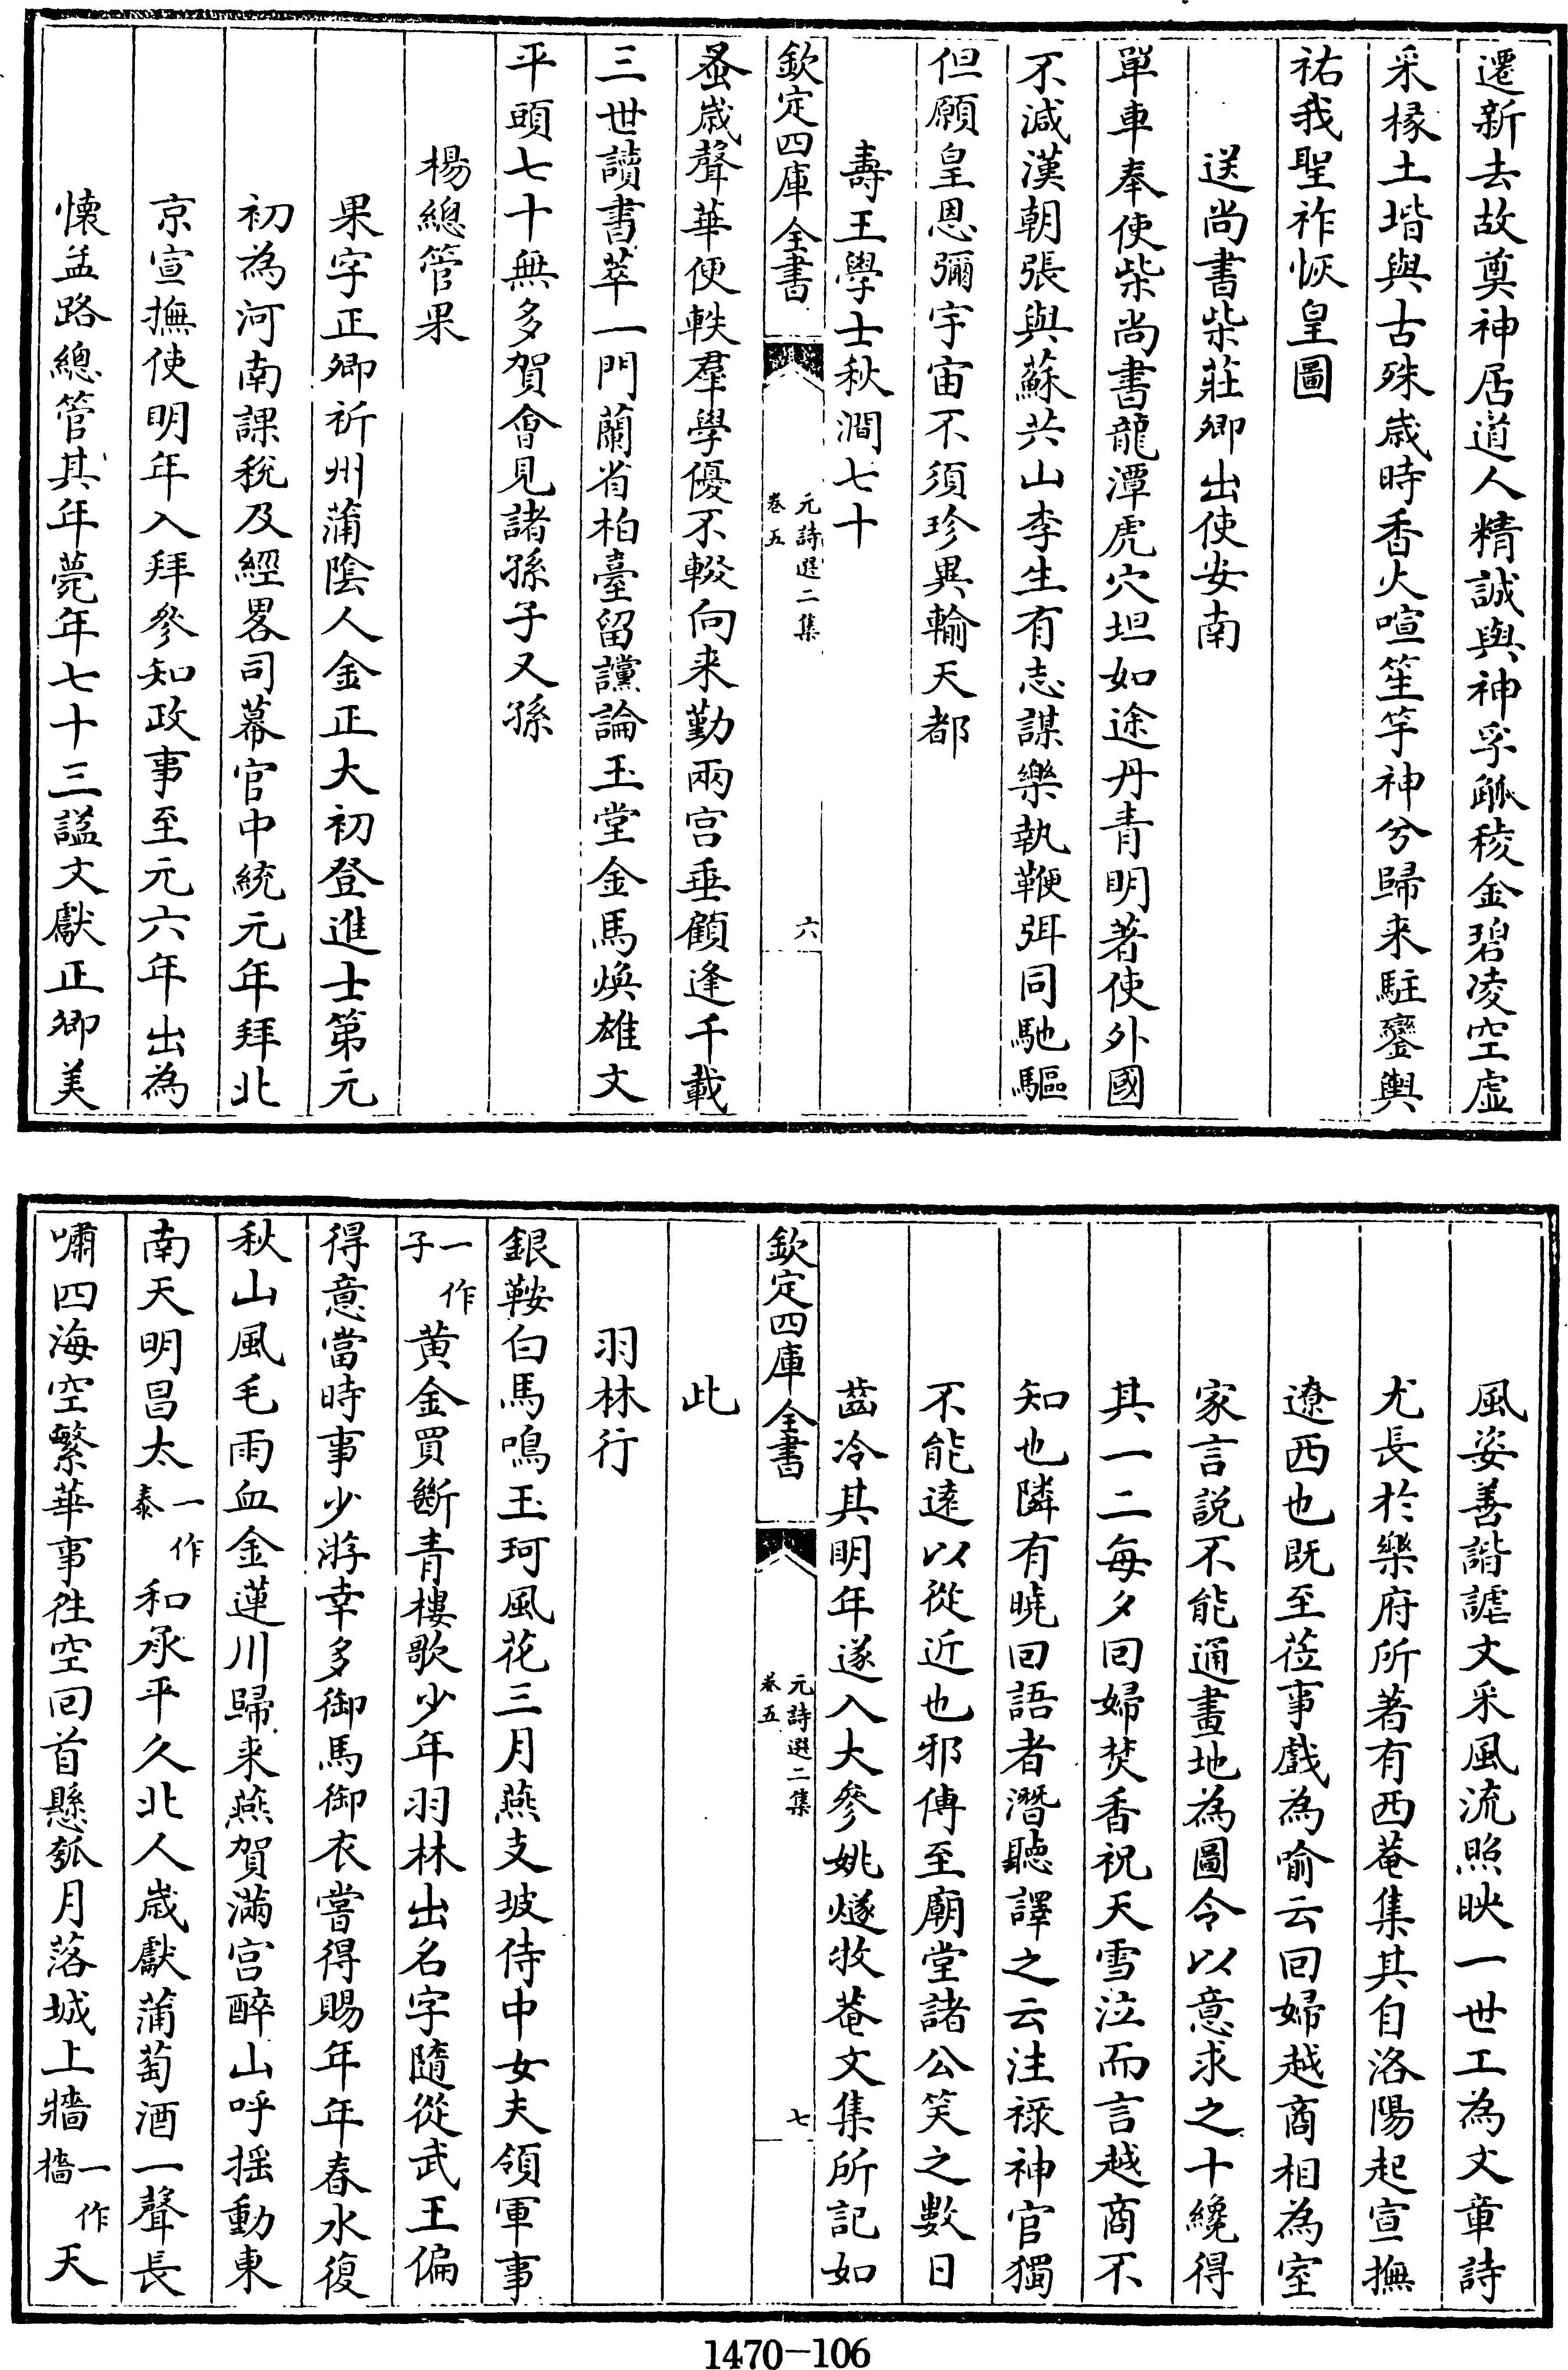 遷新去故奠神居道人精誠與神孚觚稜金碧凌空虛
采椽土堦與古殊歲時香火喧笙竽神兮歸来駐鑾輿
祐我聖祚恢皇圖
送尚書柴莊卿出使安南
單車奉使柴尚書龍潭虎穴坦如途丹青明著使外國
不減漢朝張與蘇共山李生有志謀樂執鞭弭同馳驅
但願皇恩彌宇宙不須珍異輸天都
壽王學士秋澗七十
欽定四庫全書
元詩選二集
卷五
六
蚤歲聲華便軼羣學優不輟向来勤兩宫垂顧逢千載
三世讀書萃一門蘭省柏臺留讜論玉堂金馬煥雄文
平頭七十無多賀會見諸孫子又孫
楊總管果
果字正卿祈州蒲陰人金正大初登進士第元
初為河南課稅及經畧司幕官中統元年拜北
京宣撫使明年入拜參知政事至元六年出為
懷孟路總管其年薨年七十三諡文獻正卿美
風姿善諧謔文采風流照映一世工為文章詩
尤長於樂府所著有西菴集其自洛陽起宣撫
遼西也既至莅事戲為喻云回婦越商相為室
家言説不能通畫地為圖令以意求之十纔得
其一二每夕回婦焚香祝天雪泣而言越商不
知也隣有曉回語者潛聽譯之云注禄神官獨
不能遠以從近也邪傳至廟堂諸公笑之數日
齒冷其明年遂入大參姚燧牧菴文集所記如
欽定四庫全書
元詩選二集
卷五
七
此
羽林行
銀鞍白馬鳴玉珂風花三月燕支坡侍中女夫領軍事
一作子黄金買斷青樓歌少年羽林出名字隨從武王偏
得意當時事少游幸多御馬御衣嘗得賜年年春水復
秋山風毛雨血金蓮川歸来燕賀滿宫醉山呼揺動東
南天明昌太一作泰和承平久北人歲獻蒲萄酒一聲長
嘯四海空繁華事徃空回首懸瓠月落城上牆一作檣天
1470-106